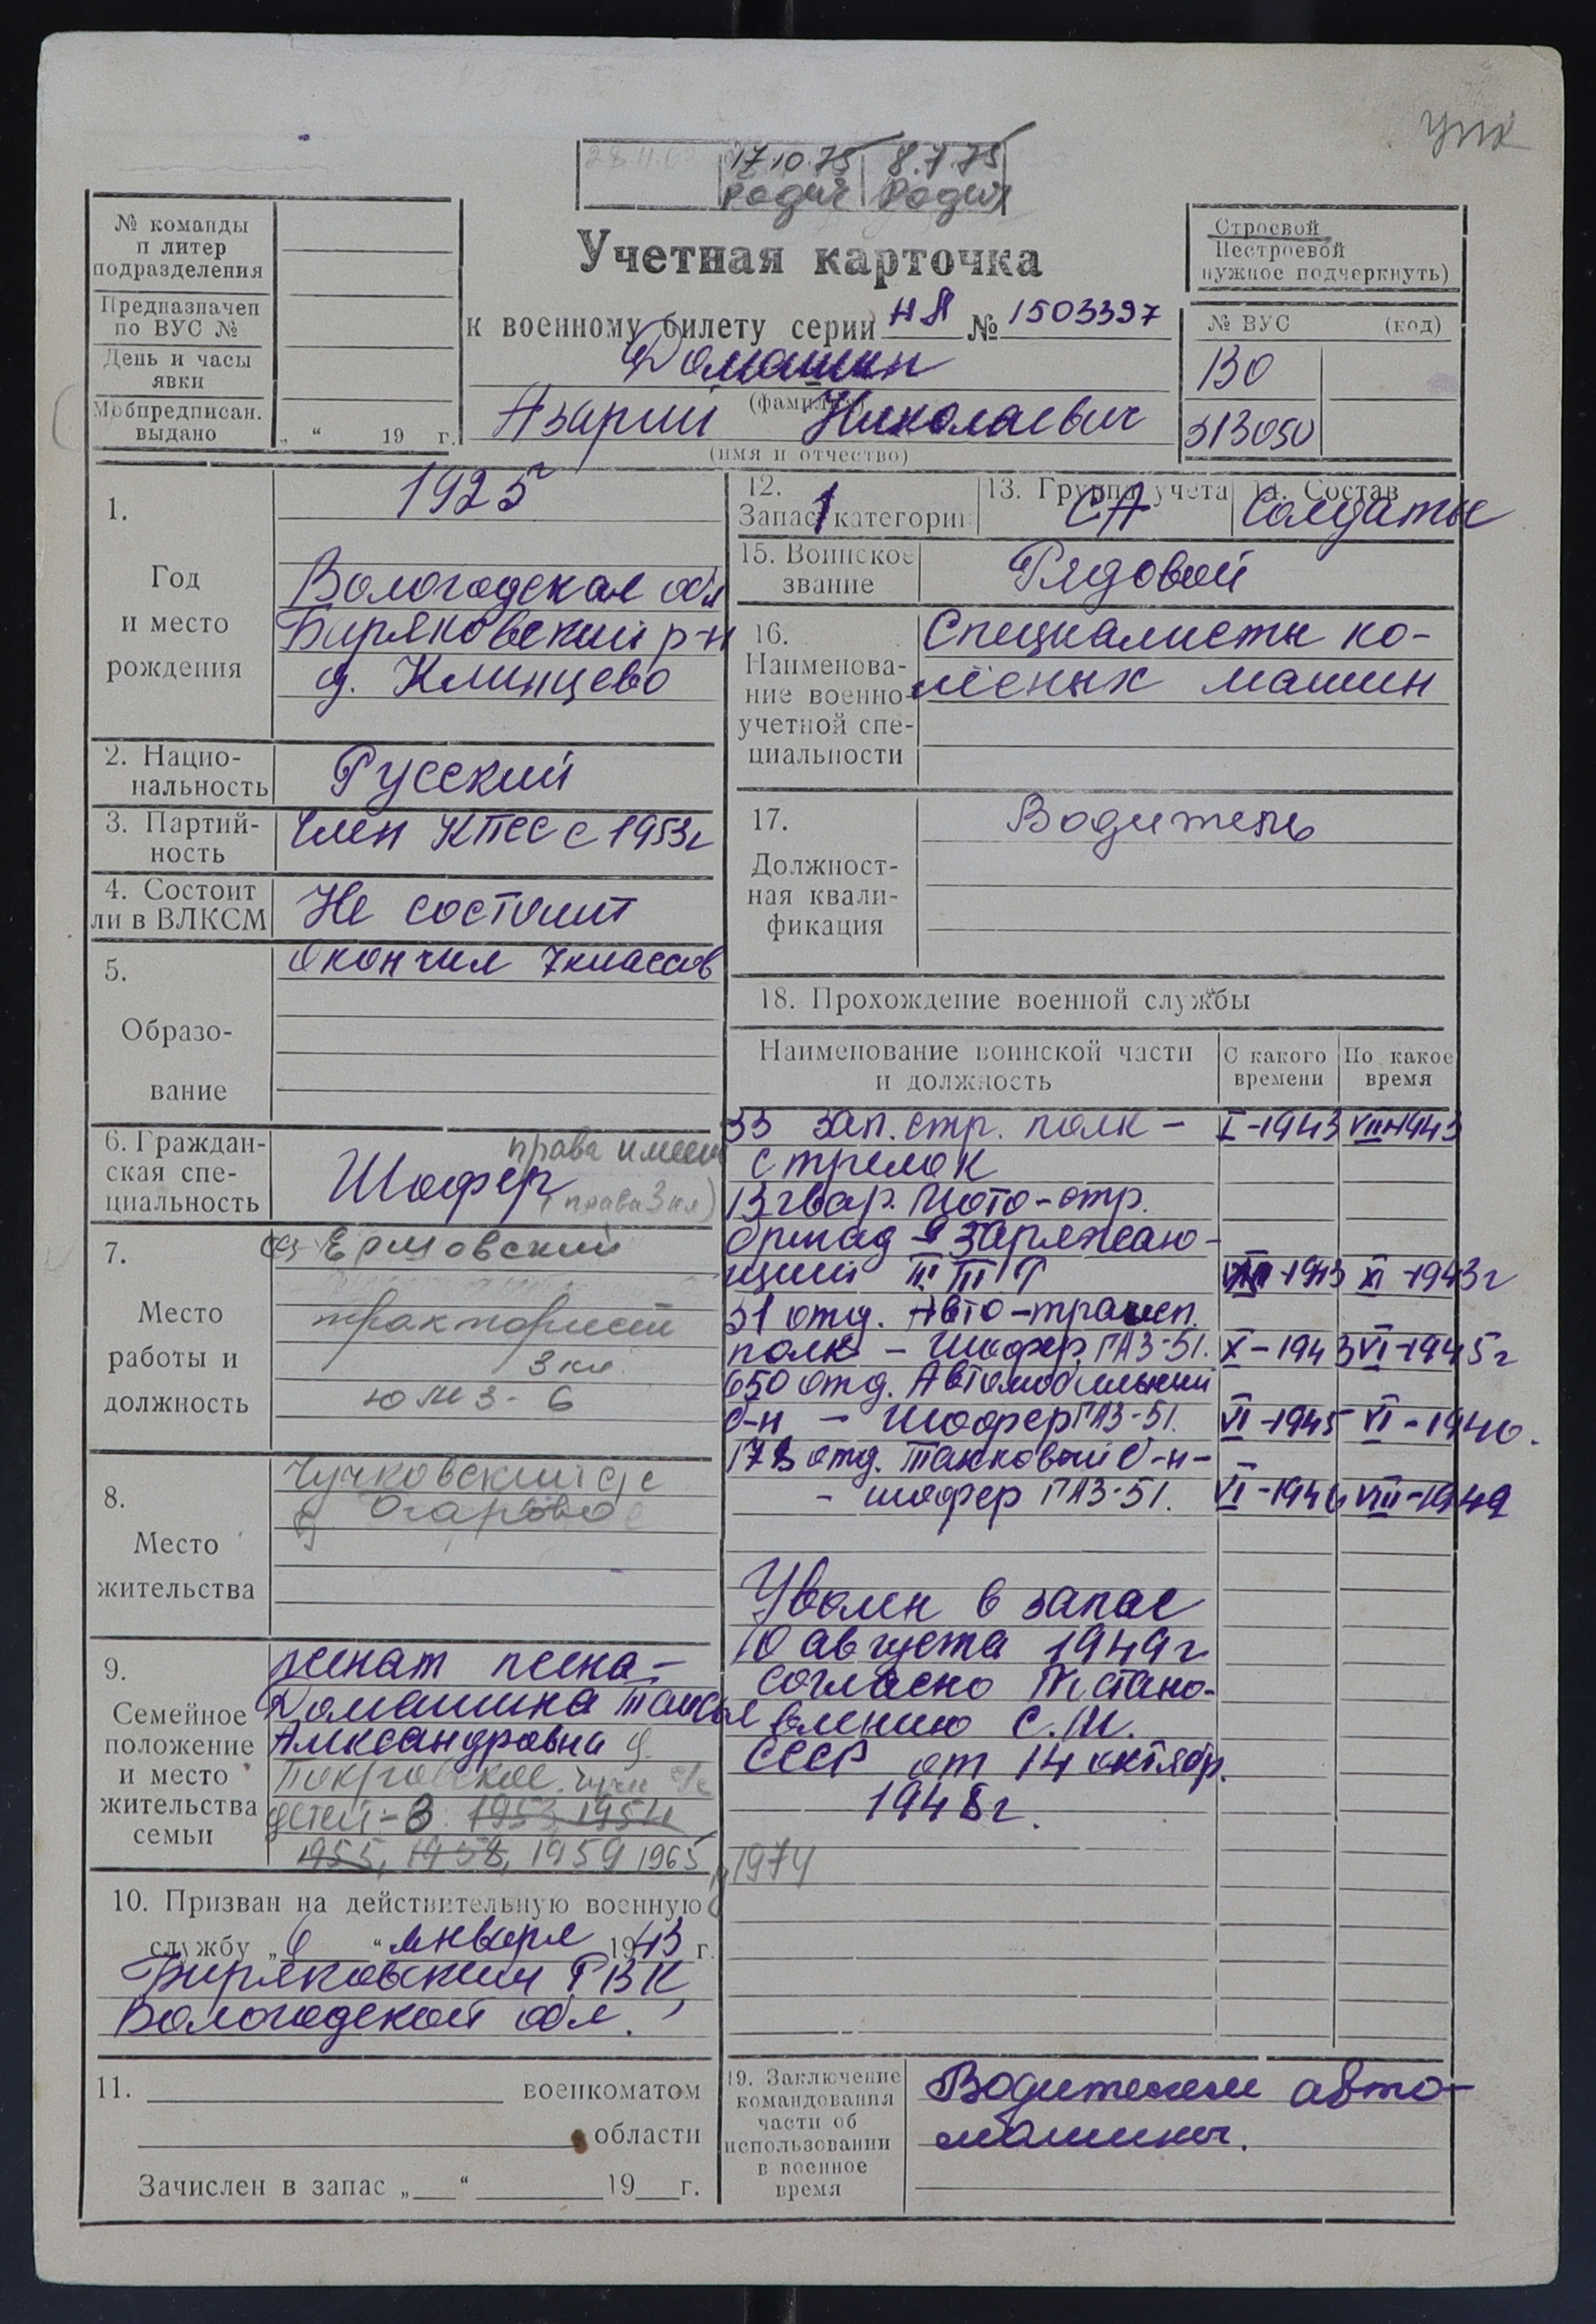 упк
17.10.75 8.7.75
Родич Родич
№ команды
и литер
подразделения
Предназначен
по ВУС №
День и часы
явки
Мобпредписан.
выдано
„ “ 19 г.
Учетная карточка
к военному билету серии НЯ № 1503397
Домашин
(фамилия)
Азарий Николаевич
(имя и отчество)
Строевой
Нестроевой
нужное подчеркнуть)
№ ВУС (код)
130
313050
1.
Год
и место
рождения
1925
Вологодская обл
Биряковский р-н
д. Климцево
2. Нацио-
нальность
Русский
3. Партий-
ность
Член КПСС с 1953г
4. Состоит
ли в ВЛКСМ
Не состоит
5.
Образо-
вание
Окончил 7 классов
6. Граждан-
ская спе-
циальность
права имеет
Шофер (права 3 кл)
7.
Место
работы и
должность
Ермовский
тракторист
3 кл.
ЮМЗ-6
8.
Место
жительства
Чучковский с/с
д Огарово
9.
Семейное
положение
и место
жительства
семьи
женат жена-
Домашина Таисья
Александровна д.
Покровское. Чучк с/с
детей-3 1953 1954
1955, 1958, 1959 1965, 1974
10. Призван на действительную военную
службу „6“ января 1943 г.
Биряковским РВК,
Вологодской обл.
11. военкоматом
области
Зачислен в запас „ “ 19 г.
12.
Запас 1 категории
13. Группа учета
СА
14. Состав
Солдаты
15. Воинское
звание
Рядовой
16.
Наименова-
ние военно-
учетной спе-
циальности
Специалисты ко-
лёсных машин
17.
Должност-
ная квали-
фикация
Водитель
18. Прохождение военной службы
Наименование воинской части
и должность
С какого
времени
По какое
время
33 зап. стр. полк - I-1943 VIII-1943
стрелок
13 гвар. Мото-стр.
бригад - заряжаю-
щий VIII-1943 XI-1943г
31 отд. Авто-трансп.
полк - Шофер ГАЗ-51. X-1943 VI-1945г
650 отд. Автомобильный
б-н - Шофер ГАЗ-51. VI-1945 VI-1946.
173 отд. Танковый б-н-
- шофер ГАЗ-51. VI-1946 VIII-1949
Уволен в запас
10 августа 1949г
согласно Постано-
влению С.М.
СССР от 14 октябр.
1948г.
19. Заключение
командования
части об
использовании
в военное
время
Водителем авто-
машины.